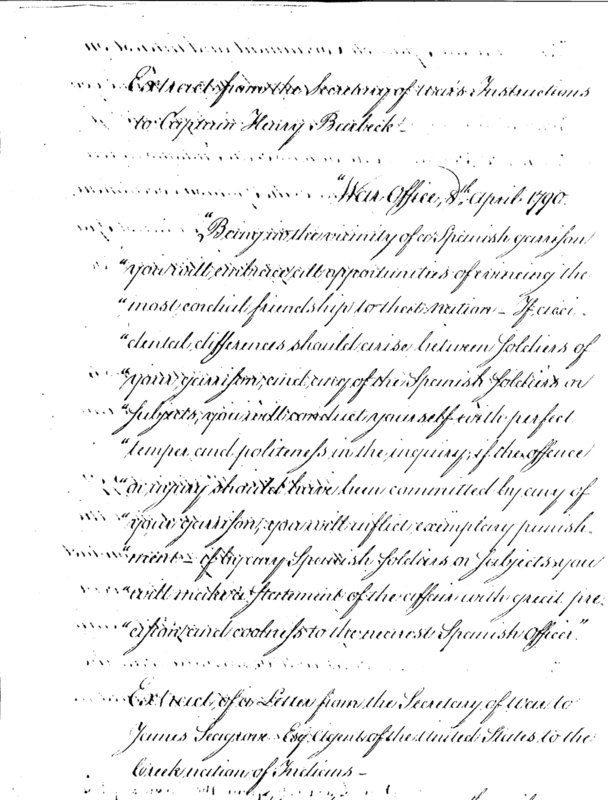 Extract from the Secretary of War's Instructions
to Captain Henry Burbeck —
"War Office, 8th April 1790.
"Being in the vicinity of a Spanish garrison
"you will, embrace all opportunities of evincing the
"most cordial friendship to that nation — If acci-
"dental differences should arise between Soldiers of
"your garrison, and any of the Spanish Soldiers or
"Subjects, you will conduct yourself with perfect
"temper and politeness in the inquiry, if the offence
"or injury should have been committed by any of
"your garrison, you will inflict exemplary punish-
"ment — if by any Spanish Soldiers or Subjects you
"will make a Statement of the affair with great pre-
"cision and coolness to the nearest Spanish Officer."
Extract, of a Letter from the Secretary of War to
James Seagrove Esq Agent of the United States to the
Creek nation of Indians —